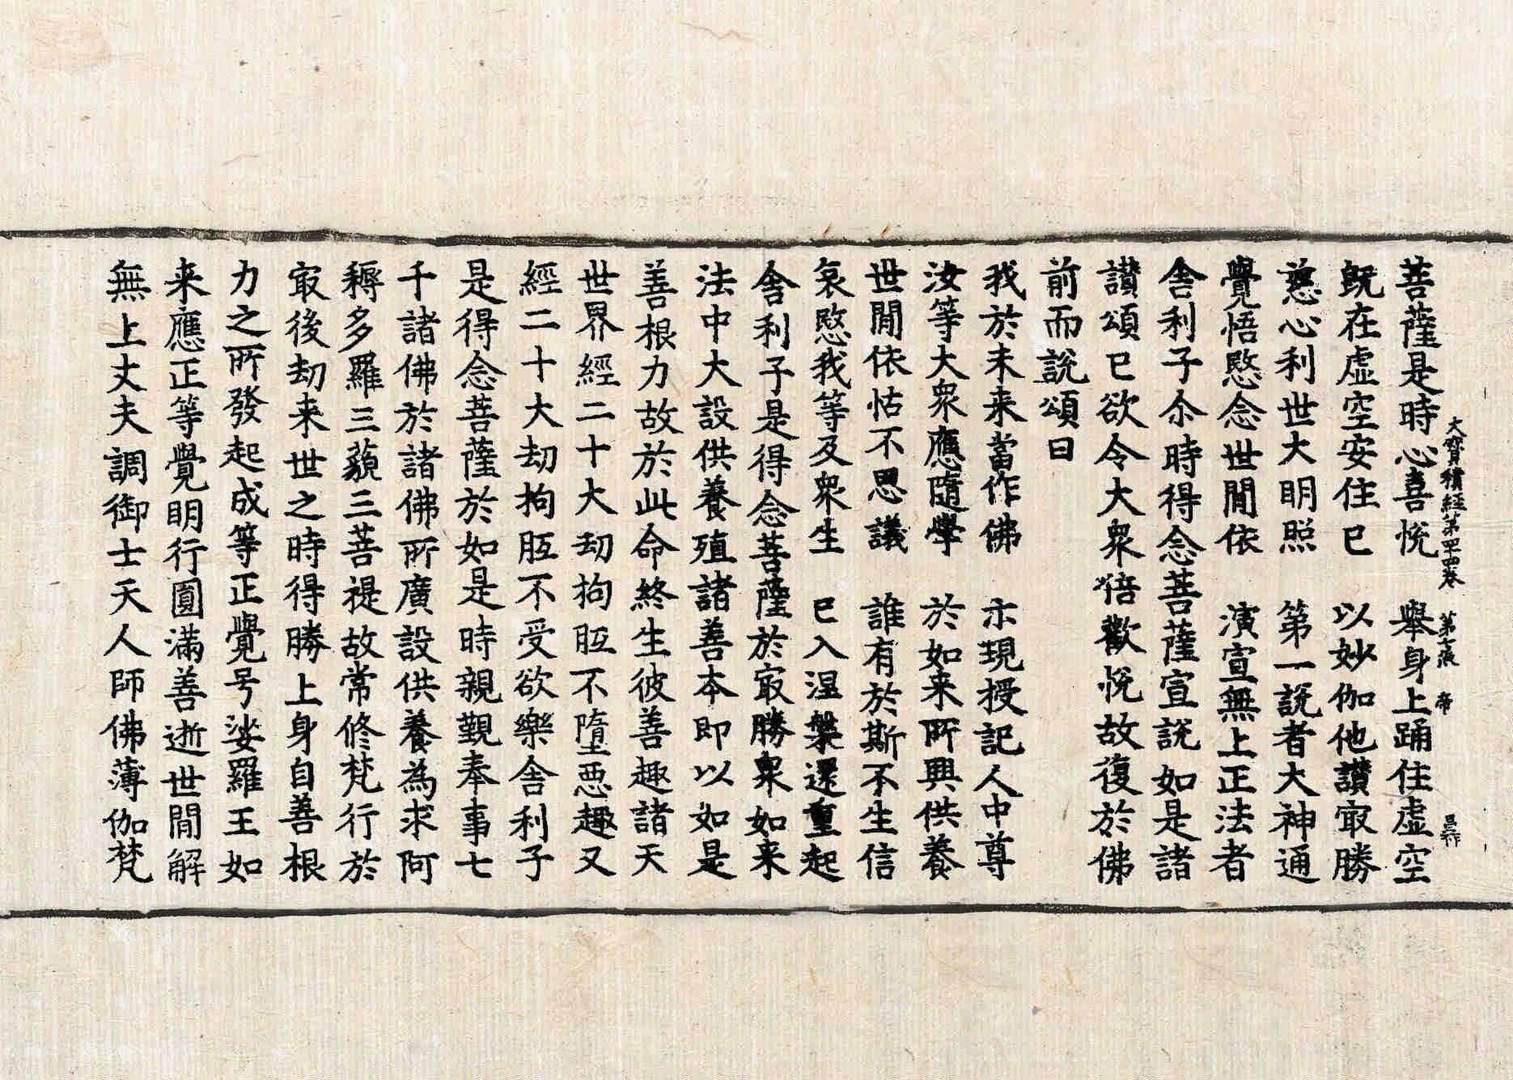 菩薩是時心喜悅　舉身上踊住虛空
大寶積經第四四卷　第七張　帝
既在虛空安住已　以妙伽他讃㝡勝
慈心利世大明照　第一說者大神通
覺悟愍念世間依　演宣無上正法者
舎利子尒時得念菩薩宣說如是諸
讃頌已欲令大衆倍歡悅故復於佛
前而說頌曰
我於未来當作佛　示現授記人中尊
汝等大衆應隨學　於如来所興供養
世間依怙不思議　誰有於斯不生信
哀愍我等及衆生　已入涅槃還重起
舎利子是得念菩薩於㝡勝衆如来
法中大設供養殖諸善本即以如是
善根力故於此命終生彼善趣諸天
世界經二十大劫拘胝不墮惡趣又
經二十大劫拘胝不受欲樂舎利子
是得念菩薩於如是時親覲奉事七
千諸佛於諸佛所廣設供養為求阿
耨多羅三藐三菩提故常修梵行於
㝡後劫来世之時得勝上身自善根
力之所發起成等正覺号娑羅王如
来應正等覺明行圓滿善逝世間解
無上丈夫調御士天人師佛薄伽梵